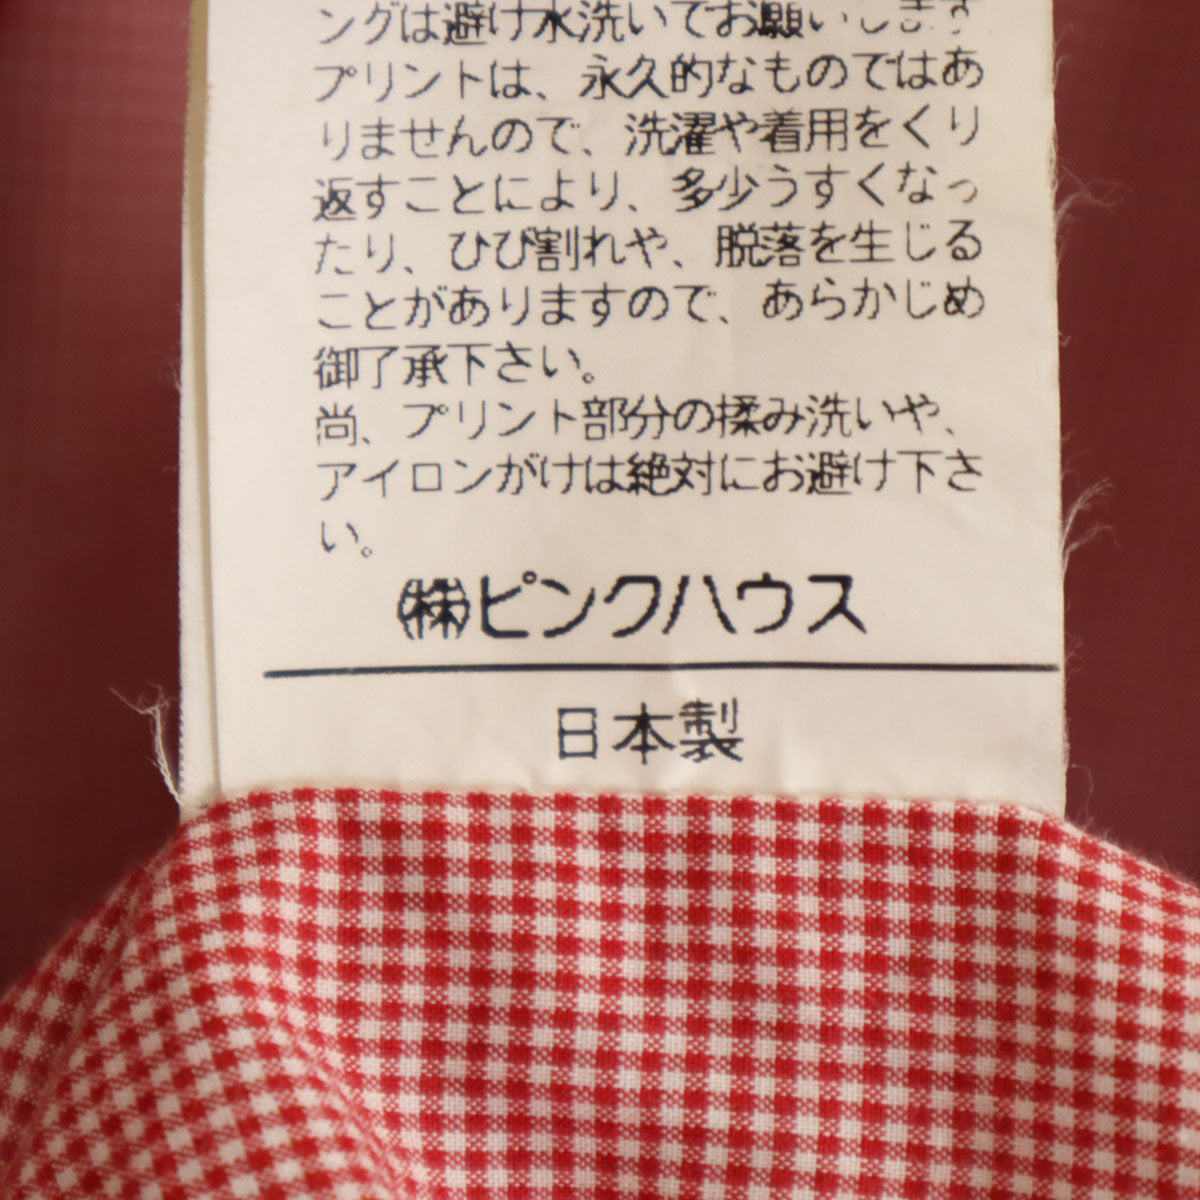 ングは避け水洗いでお願いします
プリントは、永久的なものではあ
りませんので、洗濯や着用をくり
返すことにより、多少うすくなっ
たり、ひび割れや、脱落を生じる
ことがありますので、あらかじめ
御了承下さい。
尚、プリント部分の揉み洗いや、
アイロンがけは絶対にお避け下さ
い。
㈱ピンクハウス
日本製